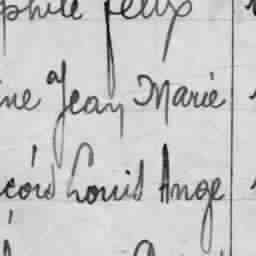 phile Felix
ine Jean Marie
cois Louis Ange